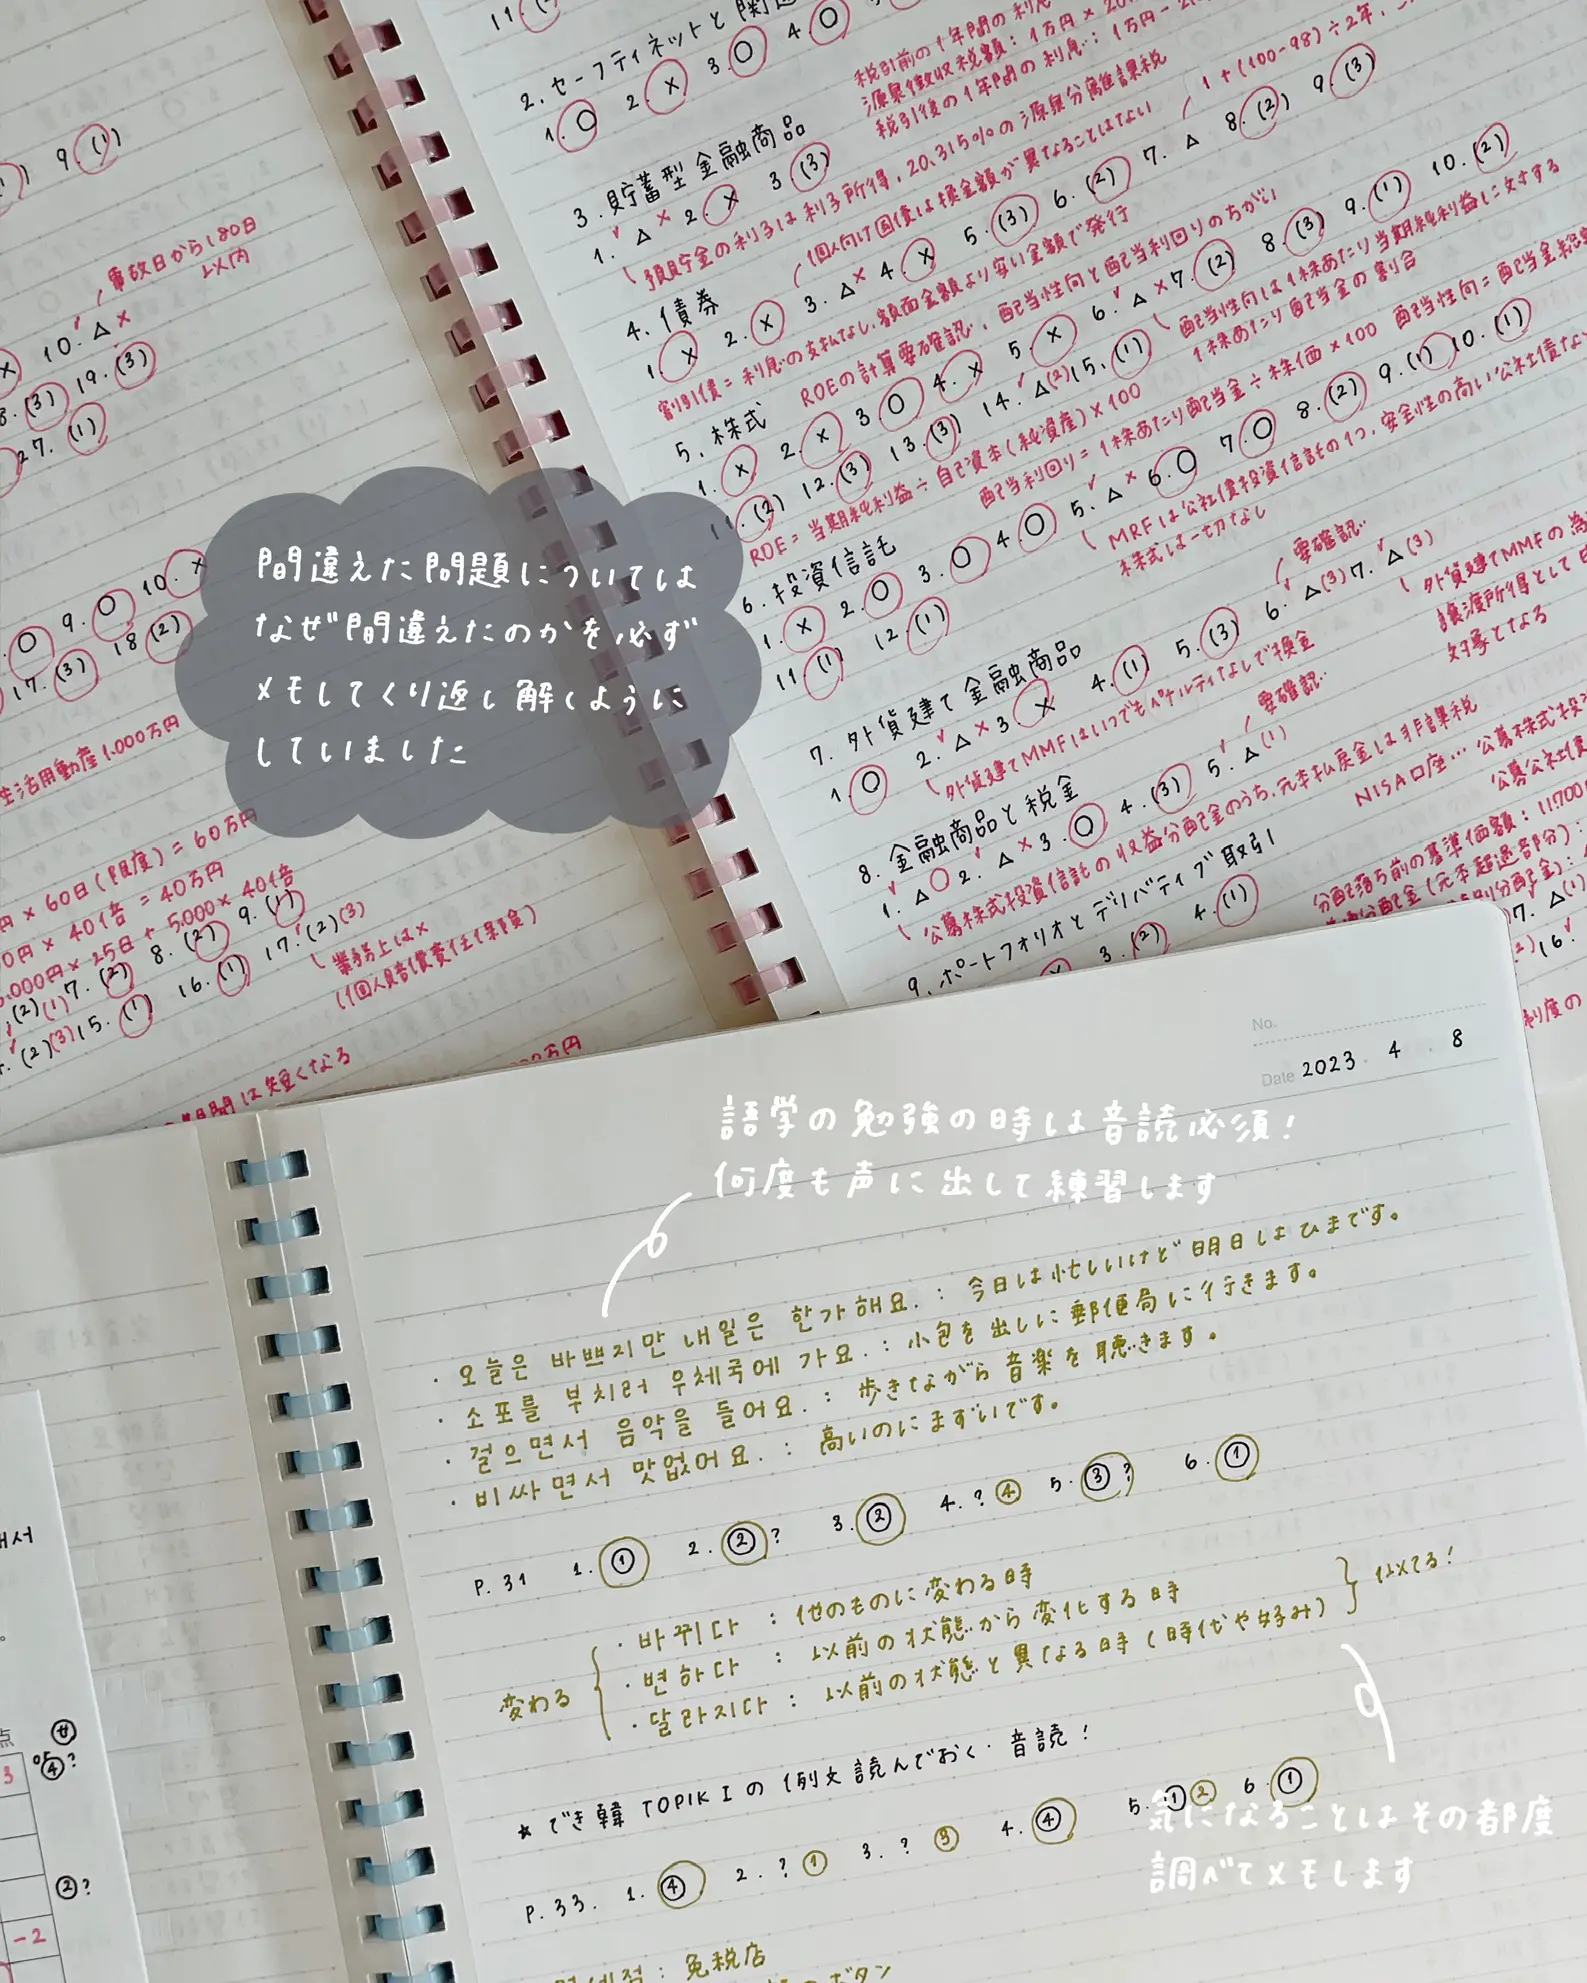 2. セーフティネットと関
1. ○ 2. × 3. ○ 4. ○
税引前の1年間の利
源泉徴収税額：1万円 × 20.
税引後の1年間の利息：1万円 - 2
3. 貯蓄型金融商品
1. △ × 2. × 3 (3)
預貯金の利子は利子所得、20.315%の源泉分離課税
1 + (100-98) ÷ 2年
4. 債券
個人向け国債は換金額が異なることはない
1. × 2. × 3. △ × 4. × 5. (3) 6. (2) 7. △ 8. (2) 9. (3)
割引債 = 利息の支払なし、額面金額より安い金額で発行
5. 株式
ROEの計算要確認、配当性向と配当利回りのちがい
1. × 2. × 3 ○ 4. × 5. × 6. △ × 7. (2) 8. (3) 9. (1) 10. (2)
配当性向は1株あたり当期純利益に対する
1株あたり配当金の割合
11. (2) 12. (3) 13. (3) 14. △(2) 15. (1)
ROE = 当期純利益 ÷ 自己資本(純資産) × 100
配当利回り = 1株あたり配当金 ÷ 株価 × 100 配当性向 = 配当金総
6. 投資信託
1. × 2. ○ 3. ○ 4. ○ 5. △ × 6. ○ 7 ○ 8. (2) 9. (1) 10. (1)
MRFは公社債投資信託の1つ、安全性の高い公社債な
株式は一切なし
11 (1) 12. (1)
7. 外貨建て金融商品
1. ○ 2. △ × 3 × 4. (1) 5. (3) 6. △(3) 7. △(3)
要確認
外貨建てMMFはいつでもペナルティなしで換金
外貨建てMMFの為
譲渡所得として
対象となる
8. 金融商品と税金
1. △ ○ 2. △ × 3. ○ 4. (3) 5. △(1)
要確認
公募株式投資信託の収益分配金のうち、元本払戻金は非課税
NISA口座… 公募株式投
公募公社債
9. ポートフォリオとデリバティブ取引
3. (2) 4. (1)
分配落ち前の基準価額：11700
9. (1)
事故日から180日
以内
10. △ ×
8. (3) 19. (3)
27. (1)
9. ○ 10. ×
17. (3) 18 (2)
生活用動産1,000万円
円 × 60日(限度) = 60万円
0円 × 40倍 = 40万円
5,000円 × 25日 + 5000 × 40倍
(2)(1) 7. (2) 8. (2) 9. (1)
(2)(3) 15. (1) 16. (1) 17. (2)(3)
業務上は×
(個人賠償責任保険)
期間は短くなる
間違えた問題については
なぜ間違えたのかを必ず
メモしてくり返し解くように
していました
No.
Date 2023 4 8
語学の勉強の時は音読必須！
何度も声に出して練習します
・오늘은 바쁘지만 내일은 한가해요. : 今日は忙しいけど明日はひまです。
・소포를 부치러 우체국에 가요. : 小包を出しに郵便局に行きます。
・걸으면서 음악을 들어요. : 歩きながら音楽を聴きます。
・비싸면서 맛없어요. : 高いのにまずいです。
P. 31 1. ① 2. ②? 3. ② 4. ? ④ 5. ③? 6. ①
変わる
・바뀌다 : 他のものに変わる時
・변하다 : 以前の状態から変化する時
・달라지다 : 以前の状態と異なる時 (時代や好み)
似てる！
★ でき韓 TOPIK I の例文読んでおく・音読！
P. 33. 1. ④ 2. ? ① 3. ? ③ 4. ④ 5. ① ② 6. ①
気になることはその都度
調べてメモします
免税店
ボタン
해서
点
3
④?
②?
-2